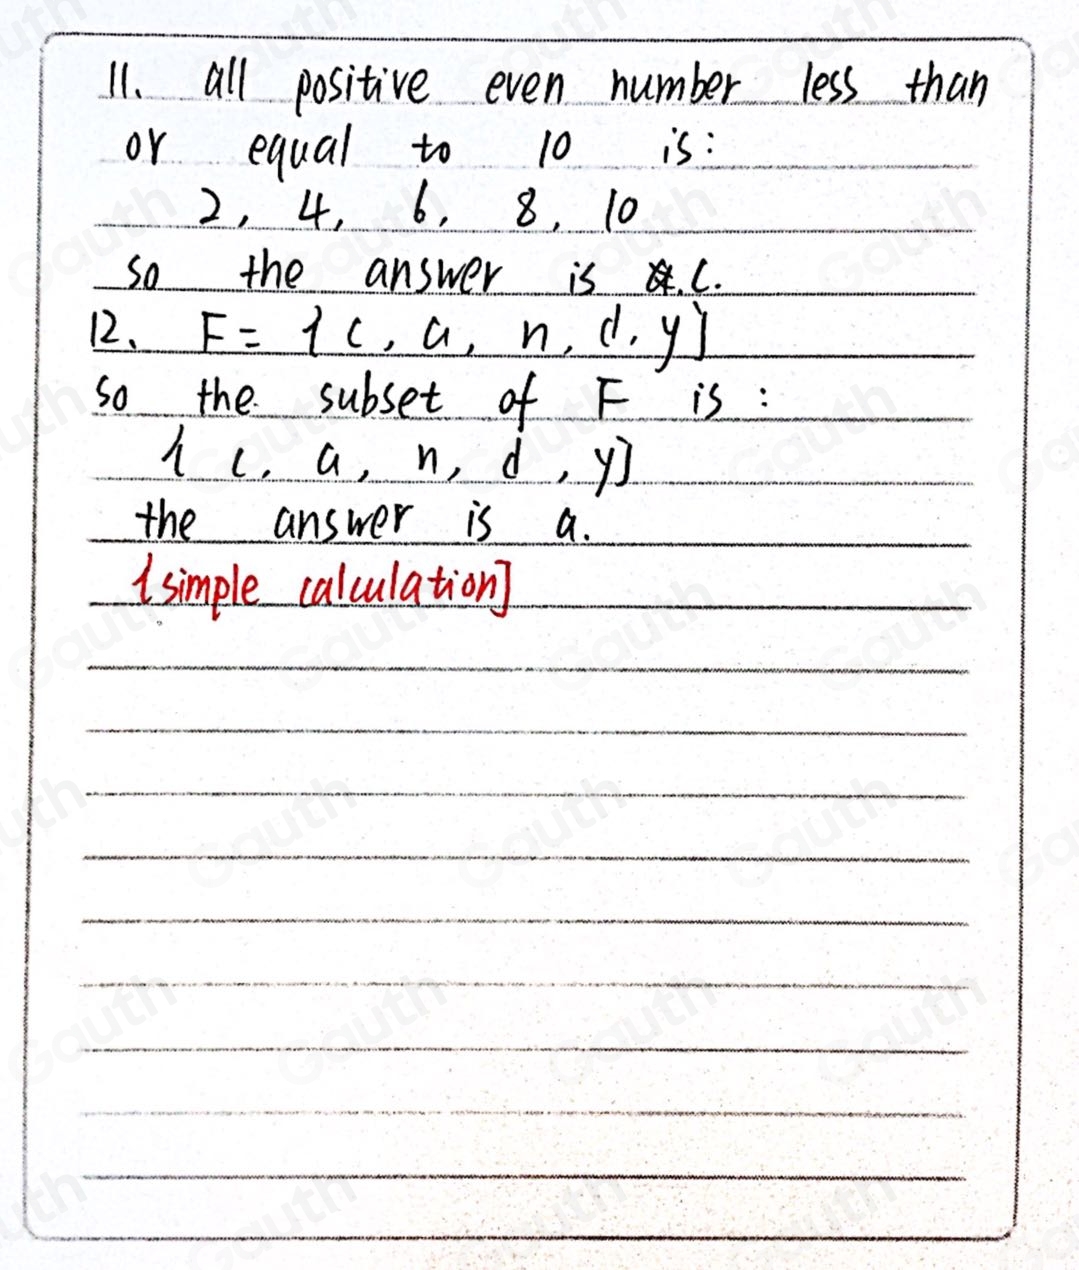 11. all positive even number less than
or equal to 10 is:
2, 4, 6, 8, 10
so the answer is c.
12. F = { c, a, n, d, y }
so the subset of F is :
{ c, a, n, d, y }
the answer is a.
{simple calculation]